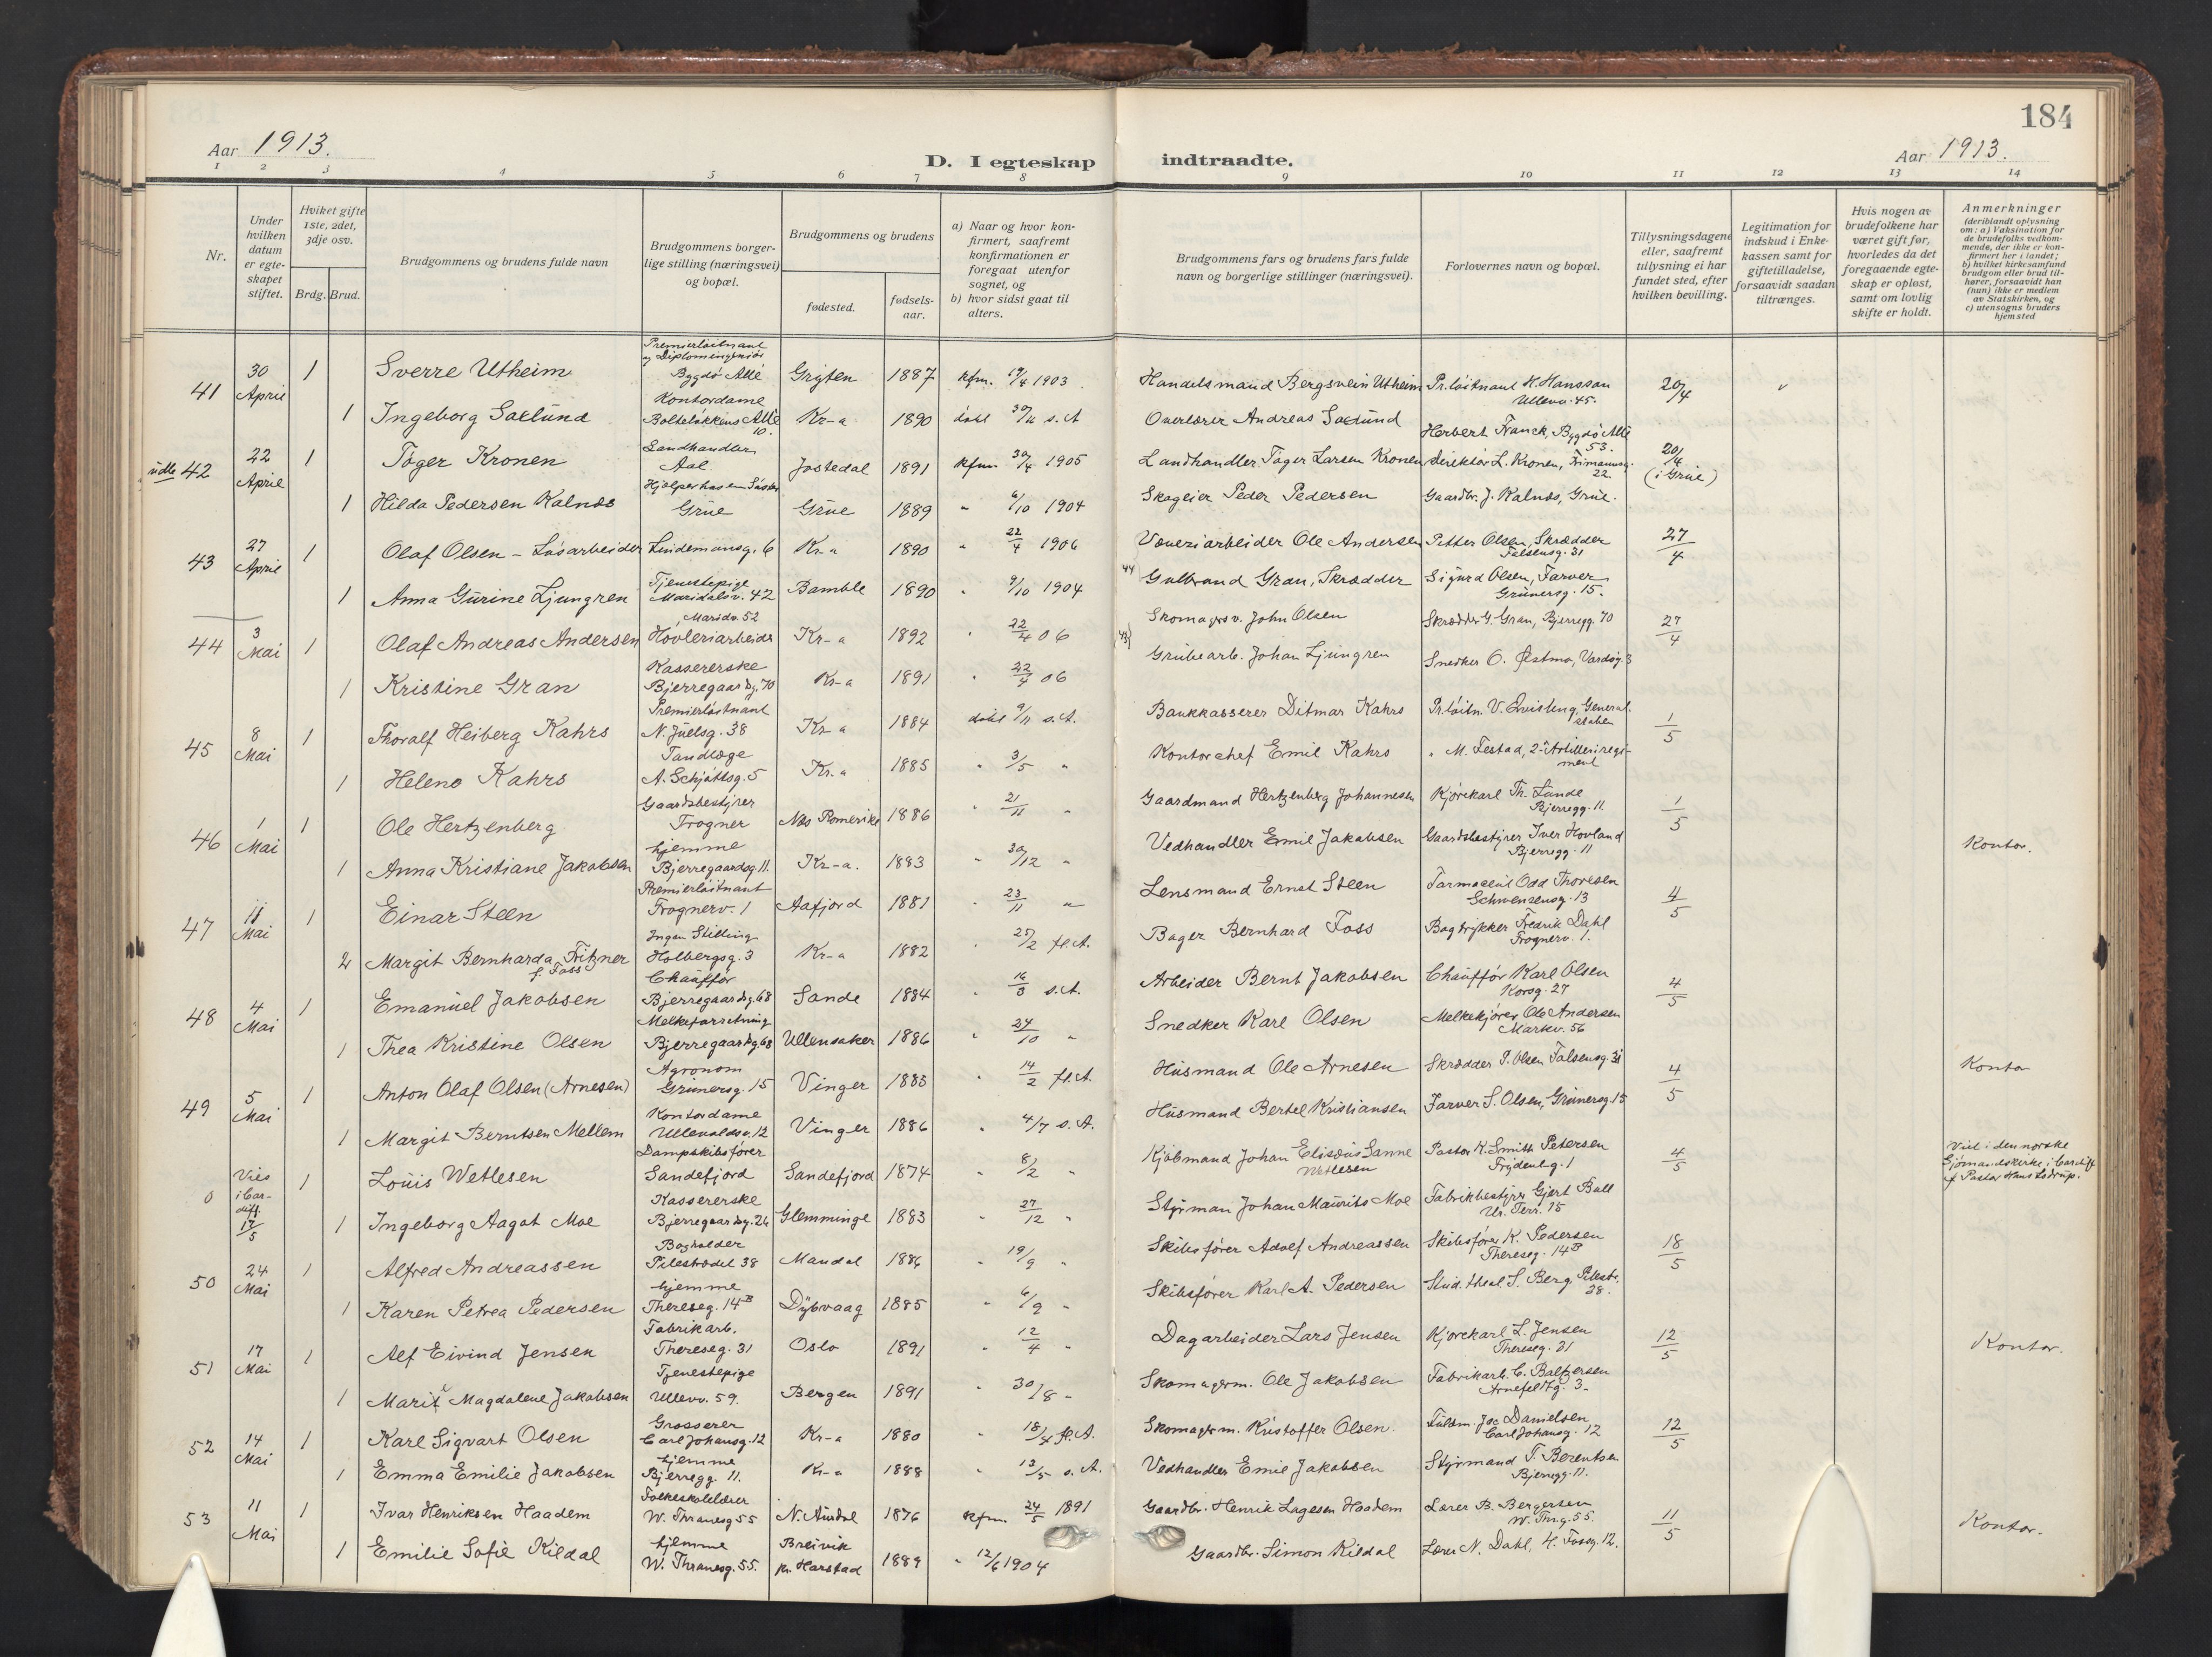 184
Aar 1913.
D. I egteskap indtraadte.
Aar 1913.
1 2 3 4 5 6 7 8 9 10 11 12 13 14
Nr.
Under hvilken datum er egteskapet stiftet.
Hviket gifte 1ste, 2det, 3dje osv.
Brdg. Brud.
Brudgommens og brudens fulde navn
Brudgommens borgerlige stilling (næringsvei) og bopæl.
Brudgommens og brudens
fødested.
fødselsaar.
a) Naar og hvor konfirmert, saafremt konfirmationen er foregaat utenfor sognet, og
b) hvor sidst gaat til alters.
Brudgommens fars og brudens fars fulde navn og borgerlige stillinger (næringsvei).
Forlovernes navn og bopæl.
Tillysningsdagene eller, saafremt tillysning ei har fundet sted, efter hvilken bevilling.
Legitimation for indskud i Enkekassen samt for giftetilladelse, forsaavidt saadan tiltrænges.
Hvis nogen av brudefolkene har været gift før, hvorledes da det foregaaende egteskap er opløst, samt om lovlig skifte er holdt.
Anmerkninger (deriblandt oplysning om: a) Vaksination for de brudefolks vedkommende, der ikke er konfirmert her i landet; b) hvilket kirkesamfund brudgom eller brud tilhører, forsaavidt han (hun) ikke er medlem av Statskirken, og c) utensogns bruders hjemsted
41 30 April 1 Sverre Utheim Premierløitnant og Diplomingeniør Bygdø Allé Gryten 1887 kfm. 19/4 1903 Handelsmand Bergsvein Utheim Pr. løitnant H. Hansson Ullevv. 45. 20/4
1 Ingeborg Saelund Kontordame Bolteløkkens Allé 10. Kr-a 1890 døbt 30/11 s. A Overlærer Andreas Saelund Herbert Franck, Bygdø Allé 53.
udb 42 22 April 1 Tøger Kronen Landhandler Aal. Jostedal 1891 kfm 30/4 1905 Landhandler Tøger Larsen Kronen direktør L. Kronen, 22. 20/4 (i Grue)
1 Hilda Pedersen Kalnæs Grue Grue 1889 " 6/10 1904 Skogeier Peder Pedersen Gaardbr. J. Kalnæs, Grue.
43 27 April 1 Olaf Olsen - Løsarbeider Lindemansg. 6 Kr-a 1890 " 22/4 1906 Væveriarbeider Ole Andersen Petter Olsen, Skrædder Falsensg. 31 27/4
1 Anna Gurine Ljungren Tjenestepige Maridalsv. 42 Bamble 1890 " 9/10 1904 44 Gulbrand Gran, Skrædder Sigurd Olsen, Farver Grünersg. 15.
44 3 Mai 1 Olaf Andreas Andersen Maridv. 52 Høvleriarbeider Kr-a 1892 " 22/4 06 Skomagersv. John Olsen Skrædder G. Gran, Bjerregg. 70 27/4
1 Kristine Gran Kassererske Bjerregaardsg. 70 Kr-a 1891 " 22/4 06 43 Grubearb. Johan Ljungren Snedker O. Østmo, Vardøg. 3
45 8 Mai 1 Thoralf Heiberg Kahrs Premierløitnant N. Juelsg. 38 Kr-a 1884 døbt 9/11 s. A. Bankkasserer Ditmar Kahrs Pr. løitn. V. Quisling, Generalstaben 1/5
1 Helene Kahrs Tandlæge A. Schjøttsg. 5 Kr.a 1885 " 3/5 " Kontorchef Emil Kahrs " M. Testad, 2. Artilleriregiment
46 1 Mai 1 Ole Hertzenberg Gaardsbestyrer Frogner Næs Romerike 1886 " 21/11 " Gaardmand Hertzenberg Johannesen Kjørekarl Th. Lunde Bjerregg. 11. 1/5
1 Anna Kristiane Jakobsen hjemme Bjerregaardsg. 11. Kr-a. 1883 " 30/12 " Vedhandler Emil Jakobsen Gaardsbestyrer Iver Hovland Bjerregg. 11 Kontor.
47 11 Mai 1 Einar Steen Premierløitnant Frognerv. 1 Aafjord 1881 " 23/11 " Lensmand Ernst Steen Farmaceut Odd Thoresen Schwensensg. 13 4/5
2 Margit Bernharda Fritzner f. Foss Ingen Stilling Holbergsg. 3 Kr-a 1882 " 25/2 f. A. Bager Bernhard Foss Bogtrykker Fredrik Dahl Frognerv. 1.
48 4 Mai 1 Emanuel Jakobsen Chauffør Bjerregaardsg. 68 Sande 1884 " 16/3 s. A. Arbeider Bernt Jakobsen Chauffør Karl Olsen Korsg. 27 4/5
1 Thea Kristine Olsen Melkeforretning Bjerregaardsg. 68 Ullensaker 1886 " 24/10 " Snedker Karl Olsen Melkekjører Ole Andersen Markv. 56
49 5 Mai 1 Anton Olaf Olsen (Arnesen) Agronom Grünersg. 15 Vinger 1885 " 14/2 fl. A. Husmand Ole Arnesen Skrædder P. Olsen Falsensg. 31 4/5 Kontor
1 Margit Berntsen Mellem Kontordame Ullevaldsv. 12 Vinger 1886 " 4/7 s. A. Husmand Bertel Kristiansen Farver S. Olsen, Grünersg 15
0 Vies i Cardiff 17/5 1 Louis Wetlesen Dampskibsfører Sandefjord Sandefjord 1874 " 8/2 " Kjøbmand Johan Elisæus Sanne Wetlesen Pastor K. Smith Petersen Frydenbg. 1 4/5 Viet i den norske Sjømandskirke i Cardiff af Pastor Hans
1 Ingeborg Aagot Moe Kassererske Bjerregaardsg. 26 Glemminge 1883 " 27/12 " Styrman Johan Maurits Moe Fabrikbestyrer Gjert Ur. Terr. 15
50 24 Mai 1 Alfred Andreassen Bogholder Pilestrædet 38 Mandal 1886 " 19/9 " Skibsfører Adolf Andreassen Skibsfører K. Pedersen Thereseg. 14B 18/5
1 Karen Petrea Pedersen hjemme Thereseg. 14B Dybvaag 1885 " 6/9 " Skibsfører Karl A. Pedersen Stud. theol. S. Berg, Pilestr. 28.
51 17 Mai 1 Alf Eivind Jensen Fabrikarb. Thereseg. 31 Oslo 1891 " 12/4 " Dagarbeider Lars Jensen Kjørekarl L. Jensen Thereseg. 31 12/5 Kontor.
1 Marit Magdalene Jakobsen Tjenestepige Ullevv. 59. Bergen 1891 " 30/8 - Skomagerm. Ole Jakobsen Fabrikarb. C. Baltzersen Armfeltsg. 3-
52 14 Mai 1 Karl Sigvart Olsen Grosserer Carl Johansg. 12 Kr-a 1880 " 18/4 fl. A. Skomagerm. Kristoffer Olsen Fuldm. Jac Danielsen Carl Johansg. 12 12/5
1 Emma Emilie Jakobsen hjemme Bjerregg. 11. Kr-a 1888 " 13/5 s. A. Vedhandler Emil Jakobsen Styrmand T. Berentsen Bjerregg. 11.
53 11 Mai 1 Ivar Henriksen Haadem Folkeskolelærer W. Thranesg 55 N. Aurdal 1876 kfm. 24/5 1891 Gaardbr. Henrik Lagesen Haadem Lærer B. Bergersen W. Thrg. 55. 11/5 Kontor.
1 Emilie Sofie Kildal hjemme W. Thranesg. 55. Breivik pr. Harstad 1889 " 12/6 1904 Gaardbr. Simon Kildal Lærer N. Dahl, H. Fossg. 12.